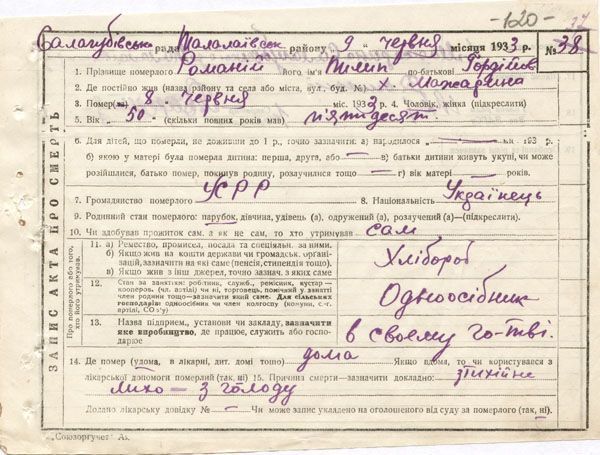 -120-
Салагубівськ рада Талалаївськ району 9 " Червня місяця 1933 р. № 38
1. Прізвище померлого Романій його ім'я Пилип по-батькові Гордійов
2. Де постійно жив (назва району та села або міста, вул. буд. №) х. Мажарина
3. Помер(ла) 8. Червня міс. 1933 р. 4. Чоловік, жінка (підкреслити)
5. Вік 50. (скільки повних років мав) п'ятдесят.
6. Для дітей, що померли, не доживши до 1 р., точно зазначити: а) народилося 193 р.
б) якою у матері була померла дитина: перша, друга, або — в) батьки дитини живуть укупі, чи може
розійшлися, батько помер, покинув родину, розлучилися тощо — г) вік матері — років.
7. Громадянство померлого УСРР 8. Національність Українець
9. Родинний стан померлого: парубок, дівчина, удівець (а), одружений (а), розлучений (а)—(підкреслити).
10. Чи здобував прожиток сам, а як не сам, то хто утримував сам
ЗАПИС АКТА ПРО СМЕРТЬ
Про померлого або того, хто його утримував.
11. а) Ремество, промисел, посада та спеціальн. за ними.
б) Якщо жив на кошти держави чи громадськ. організацій, зазначити на які саме (пенсія, стипендія тощо).
в) Якщо жив з інш джерел, точно зазнач. з яких саме
Хлібороб
12. Стан за заняттям: робітник, служб., ремісник, кустар—
кооперов. (чл. артілі) чи ні, торговець, помічний у занятті
член родини тощо—зазначити який саме. Для сільських
господарів одноосібник чи член колгоспу (комуни, с.-г.
артілі, СОЗ'у)
Одноосібник
13. Назва підприєм., установи чи закладу, зазначити
яке виробництво, де працює, служить або господарює
в своєму го-тві.
14. Де помер (удома, в лікарні, дит. домі тощо) дома Якщо вдома, то чи користувався з
лікарської допомоги померлий (так, ні) 15. Причина смерти—зазначити докладно: стихійне
лихо — з голоду
Додано лікарську довідку № — Чи може запис укладено на оголошеного від суду за померлого (так, ні).
"Союзоргучет" Аз.